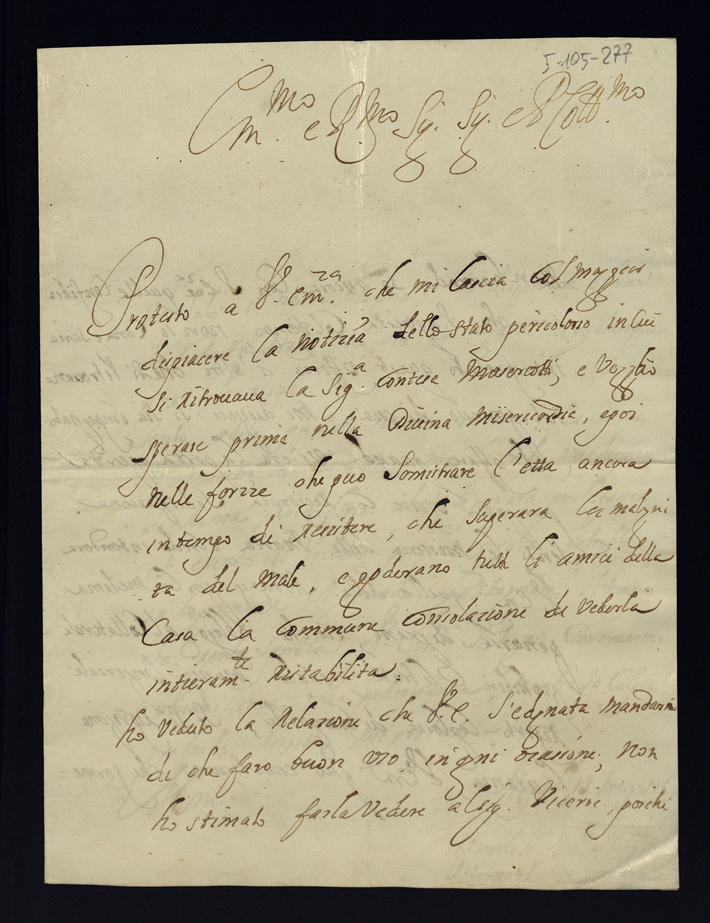 5-105-277
Em.mo e R.mo Sig. Sig. e P. Coll.mo
Protesto à V. Em.za che mi lascia col maggior
dispiacere la notizia dello stato pericoloso in cui
si ritrovava la Sig.a Contesa Marescotti, e voglio
sperare prima nella Divina Misericordia, e poi
nelle forze che può somistrare l'età ancora
in tempo di resistere, che superarà la maligni
tà del male, e goderano tutti li amici della
Casa la commune consolazione de vederla
intieram.te ristabilita.
ho veduto la relazione che V. E. s'è degnata mandarmi
di che farò buon uso in ogni ocasione, non
ho stimato farla vedere al sig. Vicerè, perche